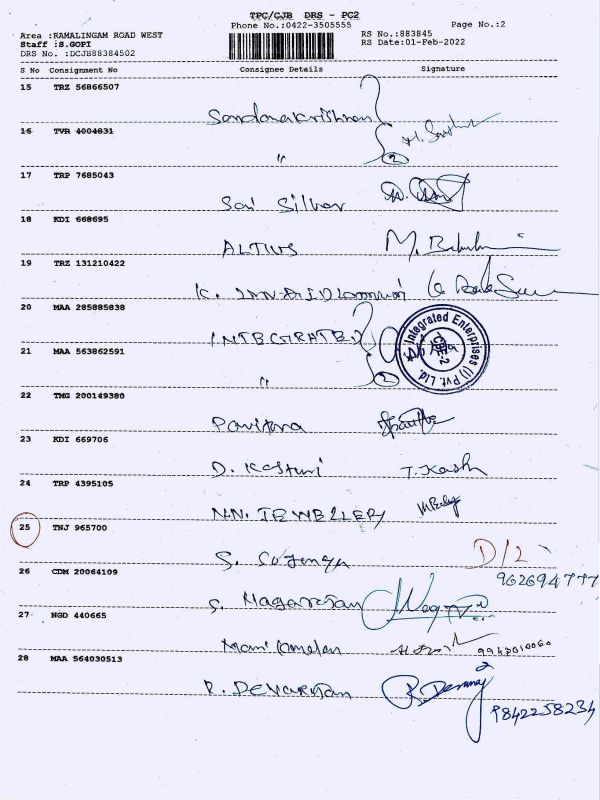 TPC/CJB DRS - PG2
Phone No.:0422-3505555
Page No.:2
Area :RAMALINGAM ROAD WEST
RS No.:883845
Staff :S.GOPI
RS Date:01-Feb-2022
DRS No. :DCJB88384502
S No Consignment No Consignee Details Signature
15 TRZ 56866507
Sandanakrishnan
16 TVR 4004831
" 2
17 TRP 7685043
Sai Silver
18 KDI 668695
ALTIUS
19 TRZ 131210422
K.
20 MAA 285885838
INTEGRATED
Integrated Enterprises (I) Pvt. Ltd.
CBE-2
21 MAA 563862591
" 2
22 TMG 200149380
Pavithra
23 KDI 669706
D. Kasturi
24 TRP 4395105
N.N. JEWELLERY
25 TNJ 965700
S. D/L
26 CDM 20064109
962694777
S. Nagarajan
27 NGD 440665
28 MAA 564030513
R. DEVARAJAN
9842258234